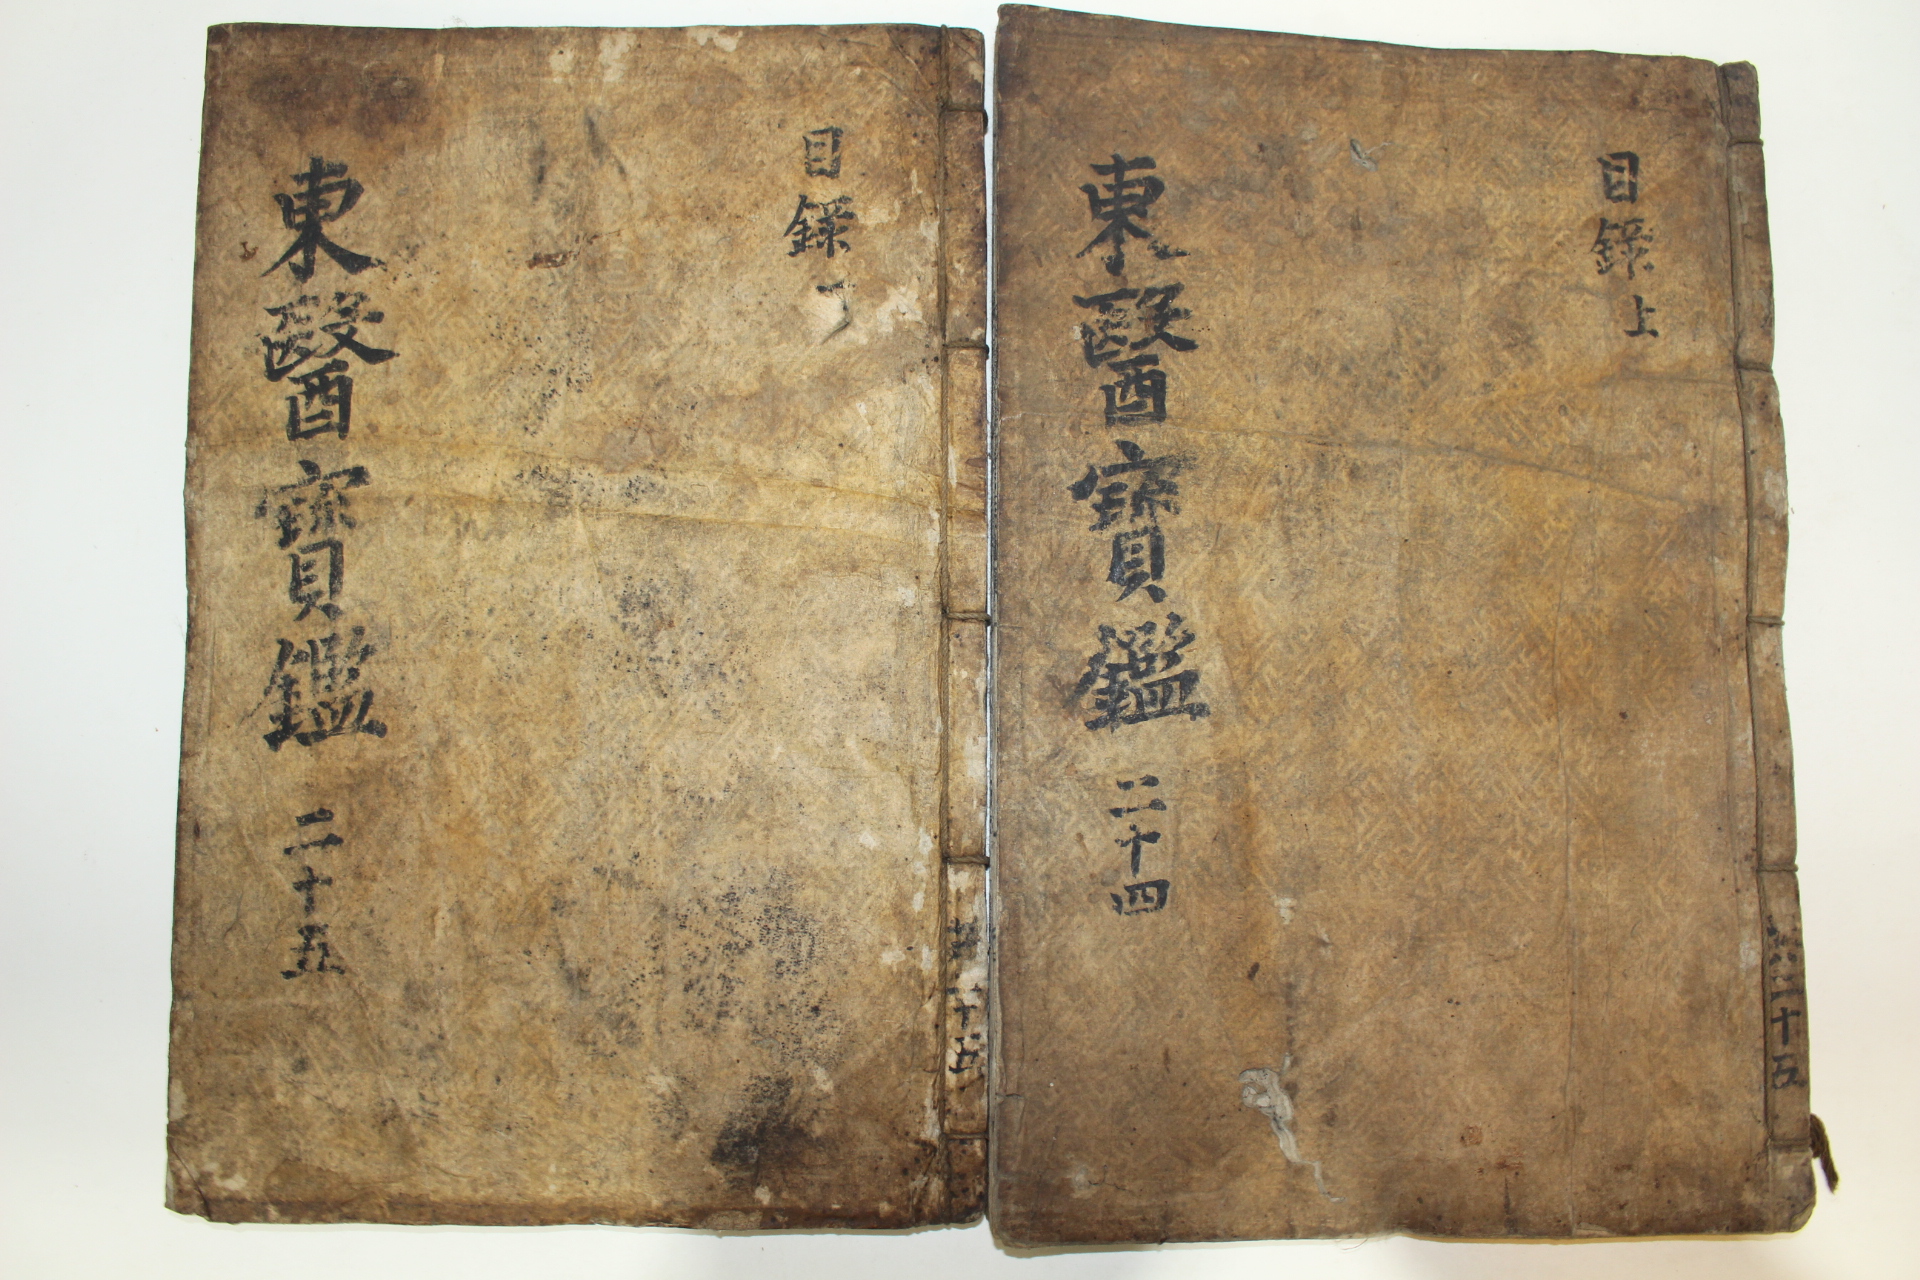 目錄上
東醫寶鑑 二十四
共二十五
目錄下
東醫寶鑑 二十五
共二十五